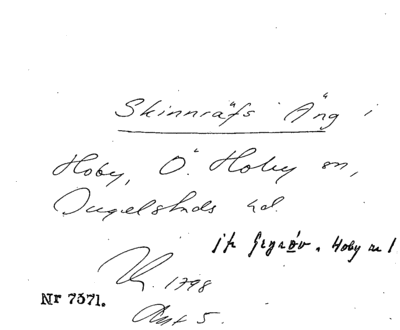 Skinnräfs Äng i
Hoby, Ö. Hoby sn,
Ingelstads hd.
jfr , Hoby nr 1
1798
Nr 7371.
Akt 5.